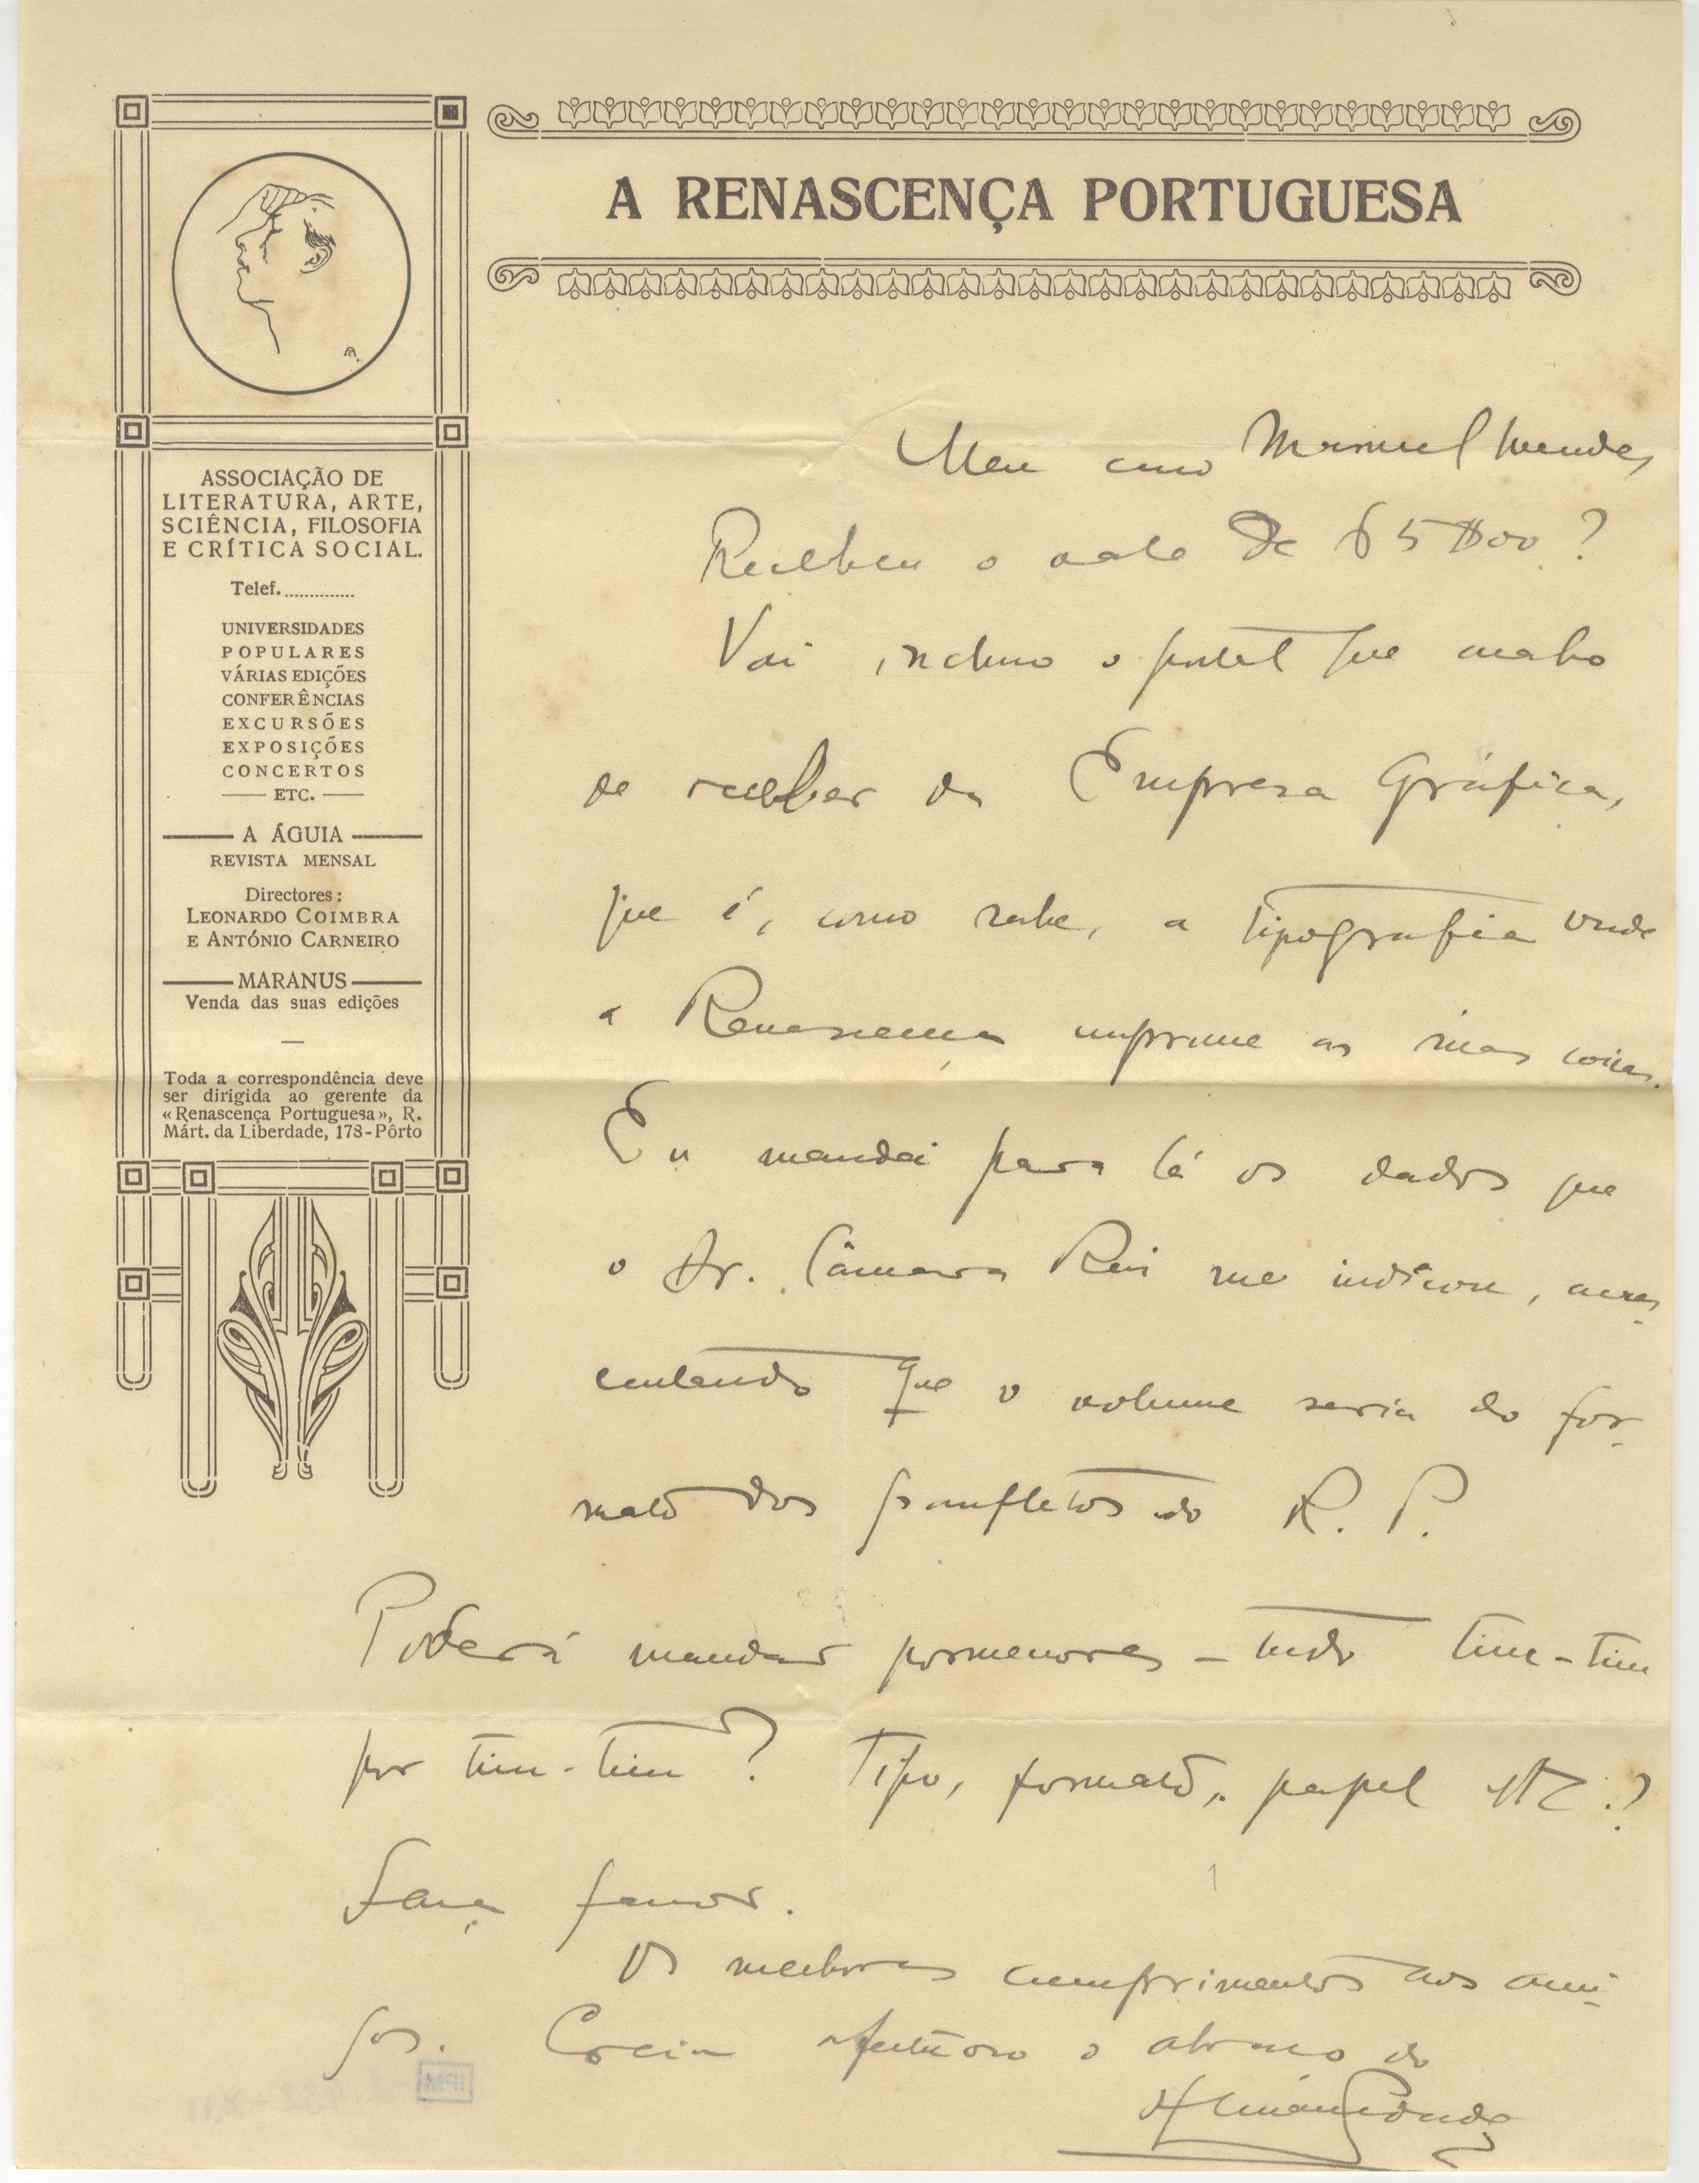 A RENASCENÇA PORTUGUESA
ASSOCIAÇÃO DE
LITERATURA, ARTE,
SCIÊNCIA, FILOSOFIA
E CRÍTICA SOCIAL.
Telef. ..............
UNIVERSIDADES
POPULARES
VÁRIAS EDIÇÕES
CONFERÊNCIAS
EXCURSÕES
EXPOSIÇÕES
CONCERTOS
ETC.
A ÁGUIA
REVISTA MENSAL
Directores:
LEONARDO COIMBRA
E ANTÓNIO CARNEIRO
MARANUS
Venda das suas edições
Toda a correspondência deve
ser dirigida ao gerente da
«Renascença Portuguesa», R.
Márt. da Liberdade, 178-Pôrto
Meu caro Manuel Mendes,
Recebeu o vale de 65$00?
Vai incluso o postal que acabo
de receber da Empresa Gráfica,
que é, como sabe, a tipografia onde
a Renascença imprime as suas coisas.
Eu mandei para lá os dados que
o Dr. Câmara Reis me indicou, acres-
centando que o volume seria do for-
mato dos panfletos do R. P.
Poderá mandar pormenores - tudo tim-tim
por tim-tim? Tipo, formato, papel etc.?
Faça favor.
Os melhores cumprimentos aos ami-
gos. Creia afectuoso o abraço do
IPM